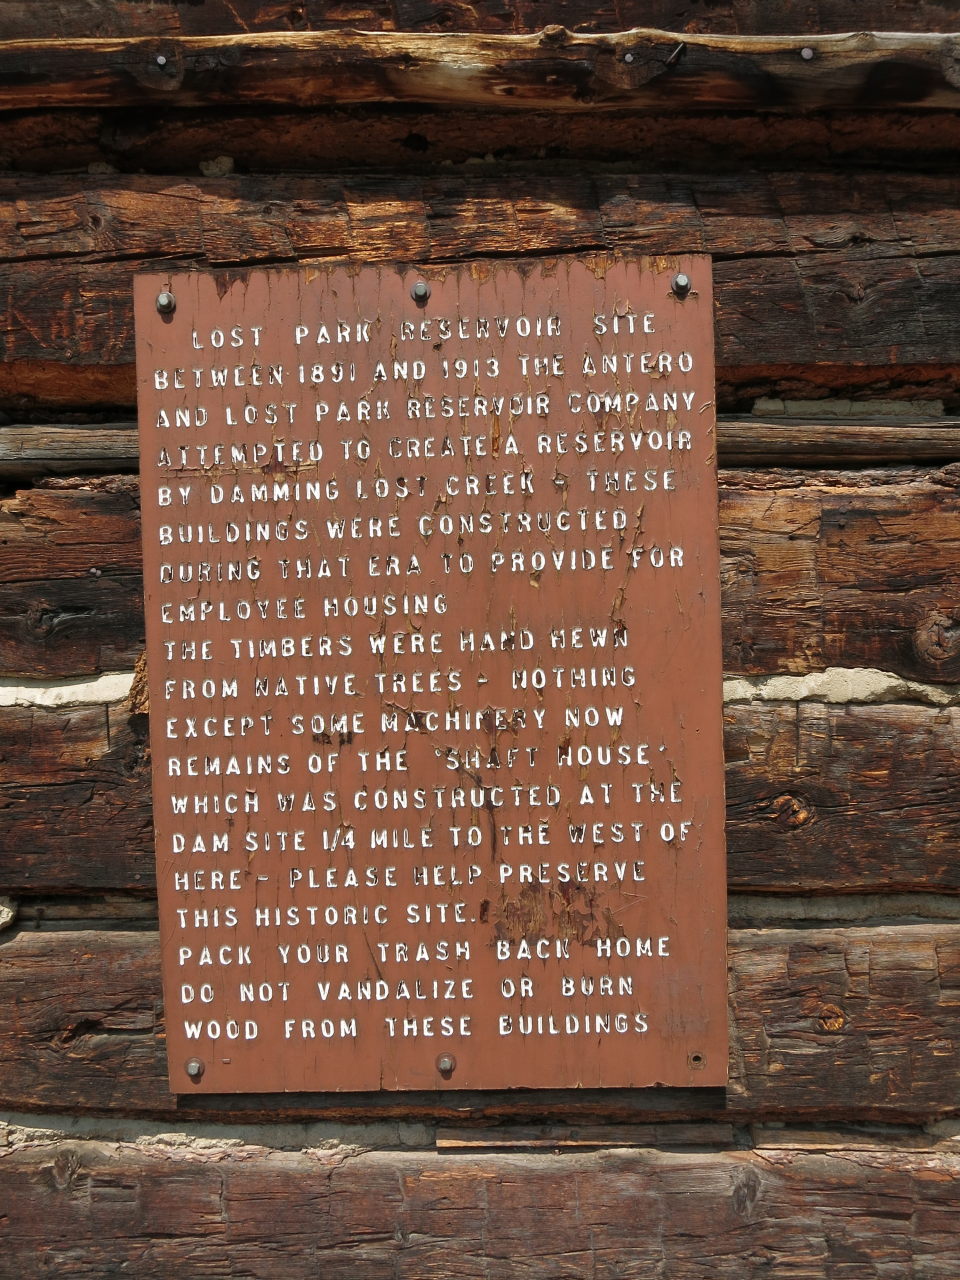 LOST PARK RESERVOIR SITE
BETWEEN 1891 AND 1913 THE ANTERO
AND LOST PARK RESERVOIR COMPANY
ATTEMPTED TO CREATE A RESERVOIR
BY DAMMING LOST CREEK - THESE
BUILDINGS WERE CONSTRUCTED
DURING THAT ERA TO PROVIDE FOR
EMPLOYEE HOUSING
THE TIMBERS WERE HAND HEWN
FROM NATIVE TREES - NOTHING
EXCEPT SOME MACHINERY NOW
REMAINS OF THE "SHAFT HOUSE"
WHICH WAS CONSTRUCTED AT THE
DAM SITE 1/4 MILE TO THE WEST OF
HERE - PLEASE HELP PRESERVE
THIS HISTORIC SITE.
PACK YOUR TRASH BACK HOME
DO NOT VANDALIZE OR BURN
WOOD FROM THESE BUILDINGS